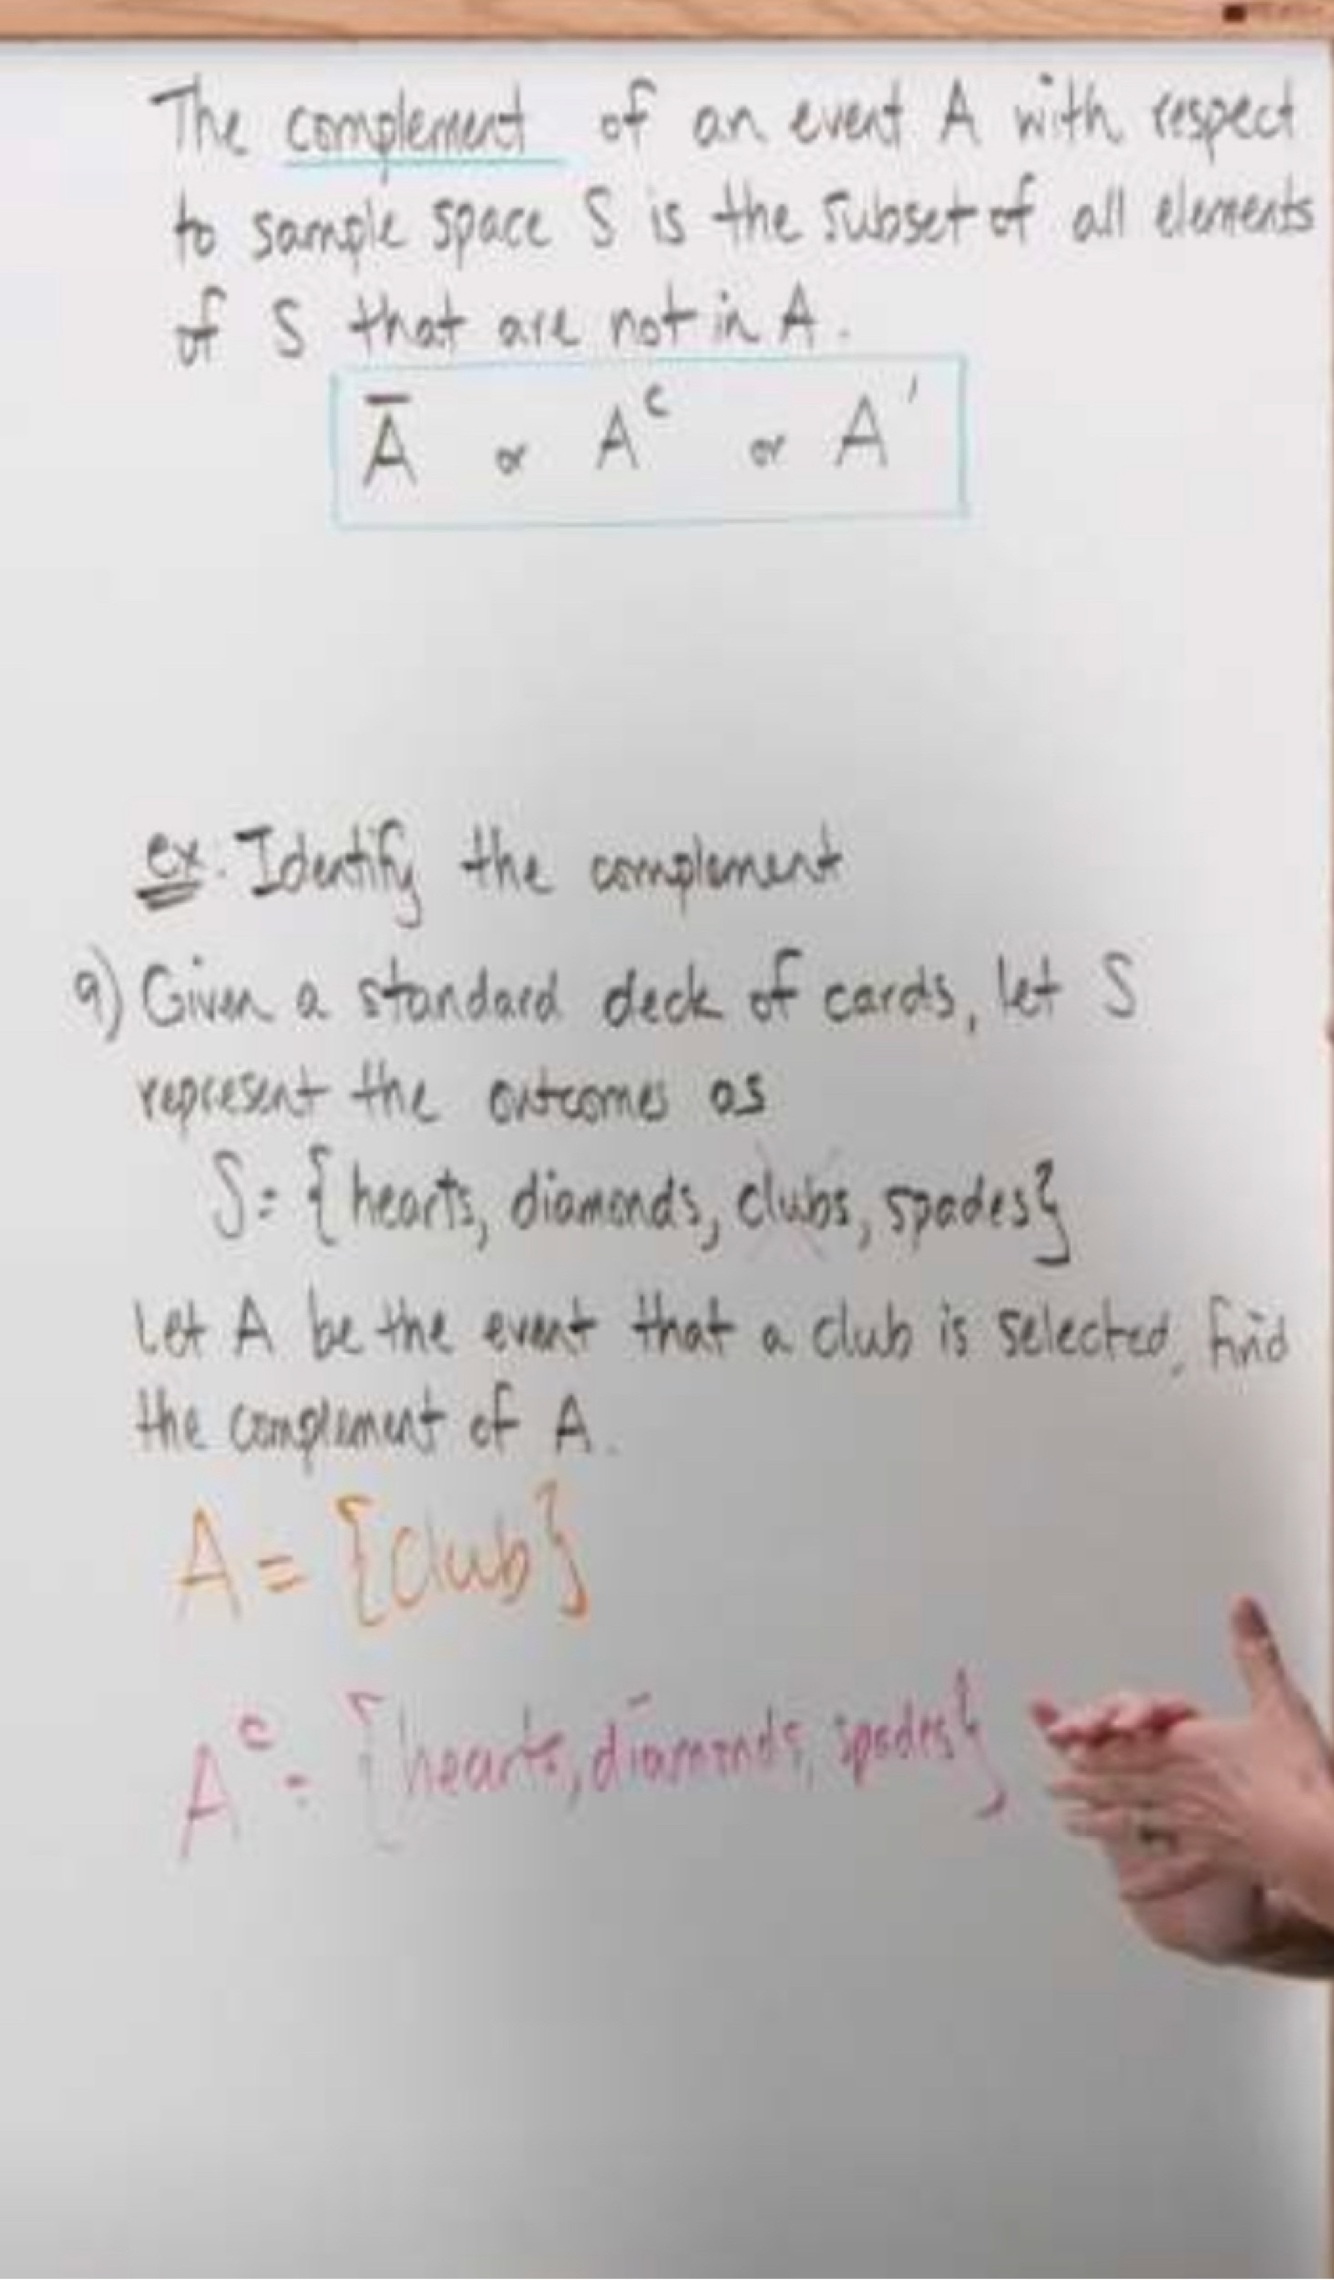 The complement of an event A with respect
to sample space S is the subset of all elements
of S that are not in A.
A̅ or Aᶜ or A'
ex: Identify the complement
9) Given a standard deck of cards, let S
represent the outcomes as
S = {hearts, diamonds, clubs, spades}
Let A be the event that a club is selected, find
the complement of A.
A = {club}
Aᶜ = {hearts, diamonds, spades}